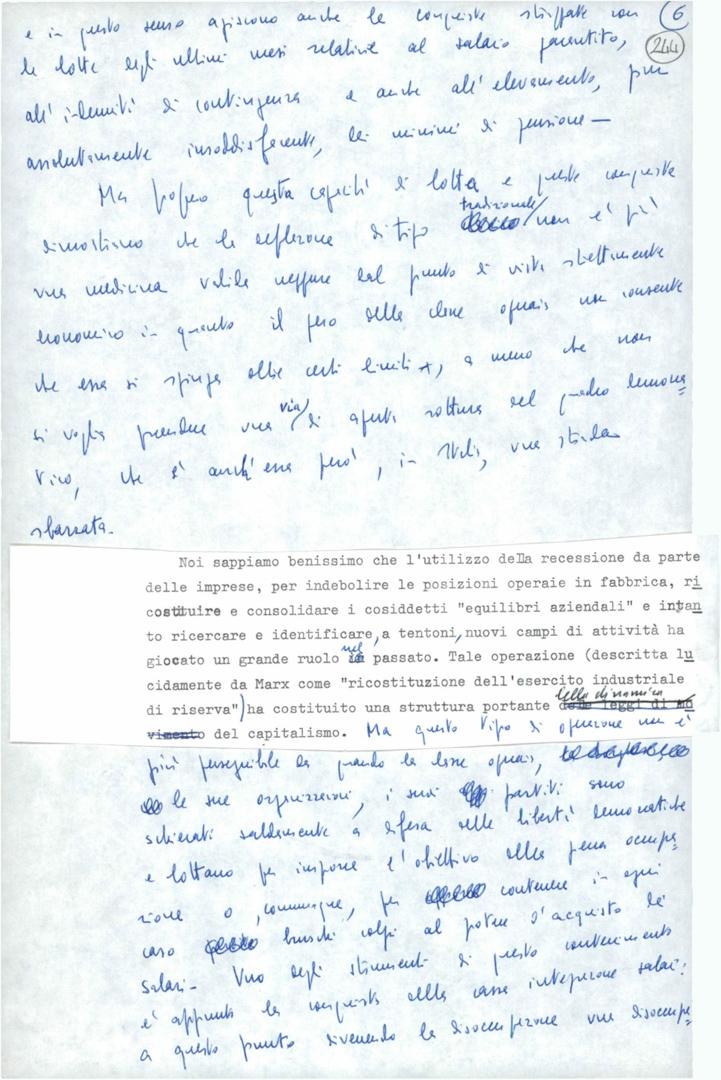 e in questo senso agiscono anche le conquiste strappate con
le lotte degli ultimi mesi relative al salario garantito,
all'indennità di contingenza e anche all'elevamento, pur
assolutamente insoddisfacente, dei minimi di pensione —
Ma proprio questa capacità di lotta e queste conquiste
dimostrano che la deflazione di tipo tradizionale non è più
una medicina valida neppure dal punto di vista strettamente
economico in quanto il peso della classe operaia non consente
che essa si spinga oltre certi limiti, a meno che non
si voglia prendere una via di aperta rottura del quadro democra
tico, che è anch'essa però, in Italia, una strada
sbarrata.
Noi sappiamo benissimo che l'utilizzo della recessione da parte
delle imprese, per indebolire le posizioni operaie in fabbrica, ri
costituire e consolidare i cosiddetti "equilibri aziendali" e intan
to ricercare e identificare, a tentoni, nuovi campi di attività ha
giocato un grande ruolo nel passato. Tale operazione (descritta lu
cidamente da Marx come "ricostituzione dell'esercito industriale
di riserva") ha costituito una struttura portante della dinamica
del capitalismo. Ma questo tipo di operazione non è
più perseguibile da quando la classe operaia,
le sue organizzazioni, i suoi partiti sono
schierati saldamente a difesa delle libertà democratiche
e lottano per imporre l'obiettivo della piena occupa
zione o, comunque, per contenere in ogni
caso bruschi colpi al potere d'acquisto dei
salari - Uno degli strumenti di questo contenimento
è appunto la conquista della cassa integrazione salari:
a questo punto divenendo la disoccupazione una disoccupa
6
244